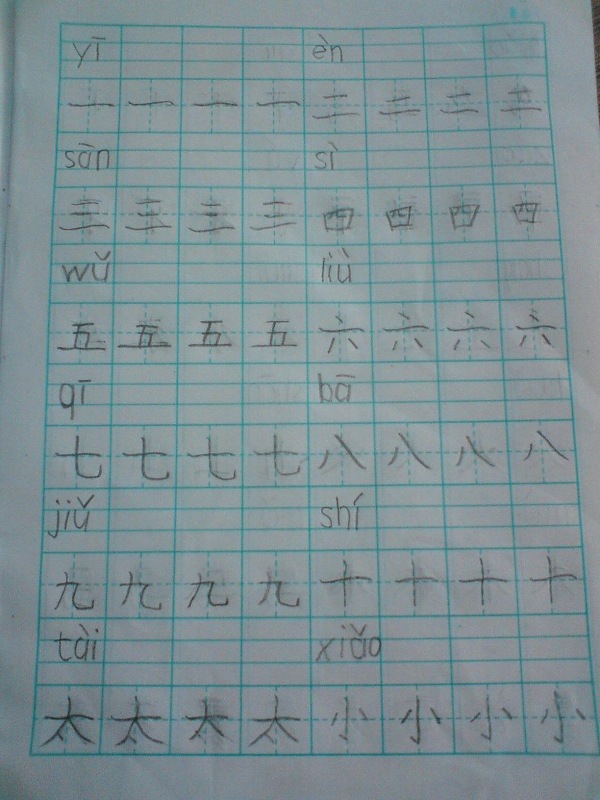 yī èn
一 一 一 一 二 二 二 二
sān sì
三 三 三 三 四 四 四 四
wǔ liù
五 五 五 五 六 六 六 六
qī bā
七 七 七 七 八 八 八 八
jiǔ shí
九 九 九 九 十 十 十 十
tài xiǎo
太 太 太 太 小 小 小 小